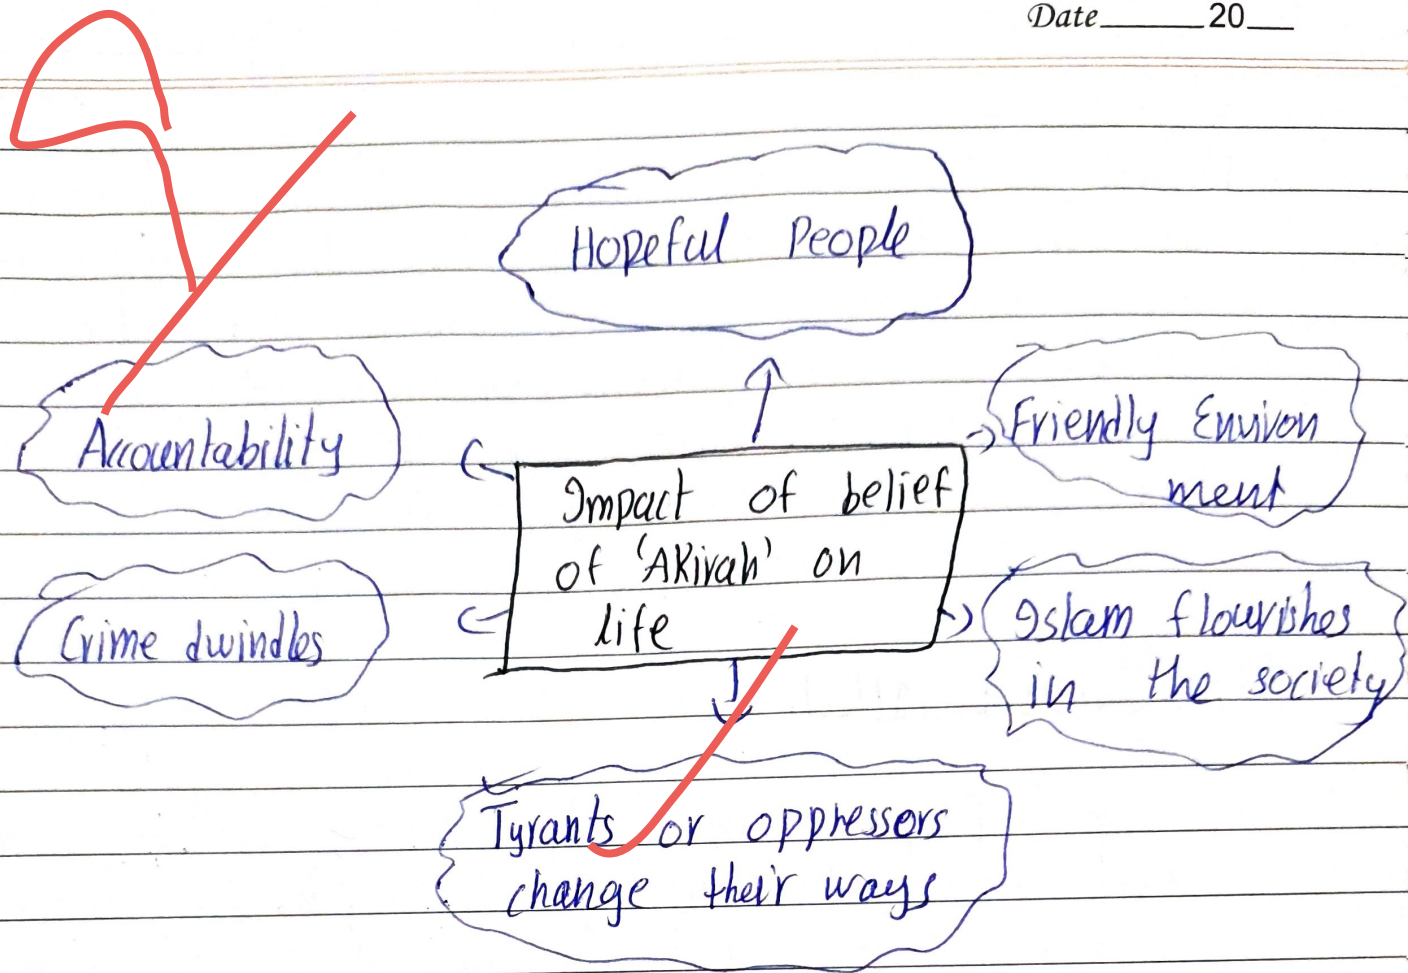 Date______20___
Hopeful People
Accountability
Friendly Environ
ment
Impact of belief
of 'AKirah' on
life
Crime dwindles
Islam flourishes
in the society
Tyrants or oppressors
change their ways